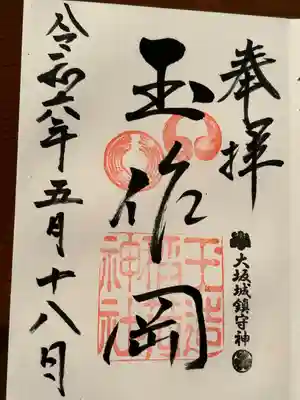 奉拝
大坂城鎮守神
玉作岡
玉造稲荷神社
令和六年五月十八日